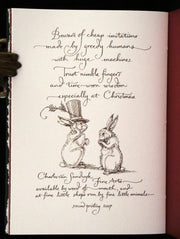 Beware of cheap imitations
made by greedy humans
with huge machines.
Trust nimble finger
and time-worn wisdom
especially at Christmas
Fine Arts
available by word of mouth, and
at fine little shops run by fine little animals